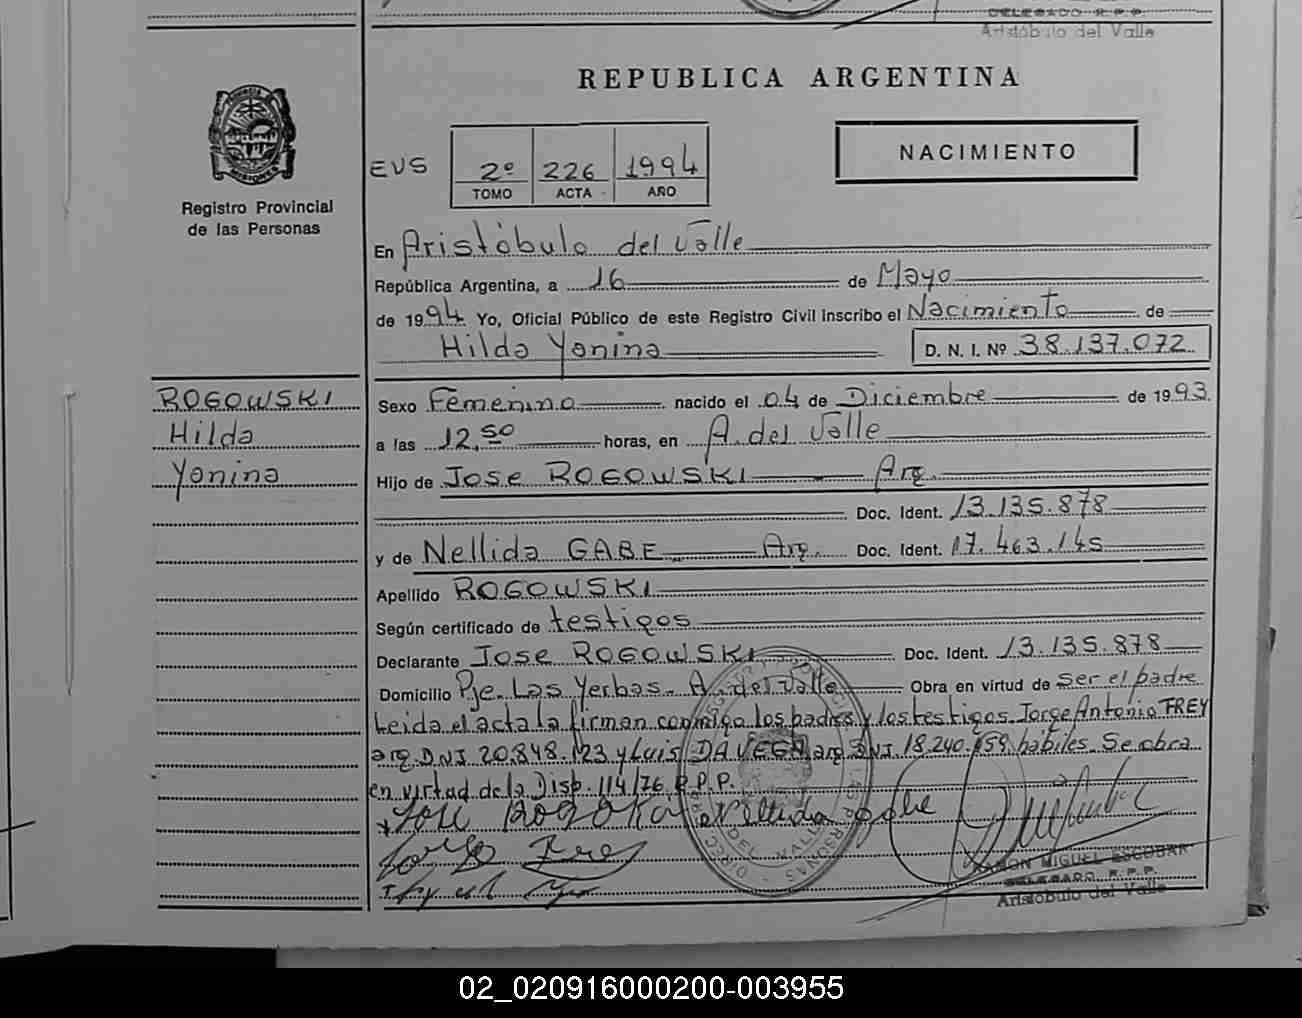 DELEGADO R.P.P.
Aristóbulo del Valle
REPUBLICA ARGENTINA
PROVINCIA DE MISIONES
Registro Provincial
de las Personas
EVS
2º 226 1994
TOMO ACTA AÑO
NACIMIENTO
En Aristóbulo del Valle
República Argentina, a 16 de Mayo
de 1994 Yo, Oficial Público de este Registro Civil inscribo el Nacimiento de
Hilda Yanina D. N. I. Nº 38.137.072
ROGOWSKI
Hilda
Yanina
Sexo Femenino nacido el 04 de Diciembre de 1993.
a las 12,50 horas, en A. del Valle
Hijo de Jose ROGOWSKI - Arg.
Doc. Ident. 13.135.878
y de Nellida GABE Arg. Doc. Ident. 17.463.145
Apellido ROGOWSKI
Según certificado de testigos
Declarante Jose ROGOWSKI Doc. Ident. 13.135.878
Domicilio Pje. Las Yerbas. A. del Valle Obra en virtud de ser el padre
Leida el acta la firman conmigo los padres y los testigos Jorge Antonio FREY
arg DNI 20.848.123 y Luis DA VEGA arg DNI 18.240.159 hábiles. Se obra
en virtud de la Disp. 114/76 R.P.P.
Nellida gabe
RAMON MIGUEL ESCOBAR
DELEGADO R.P.P.
Aristóbulo del Valle
02_020916000200-003955